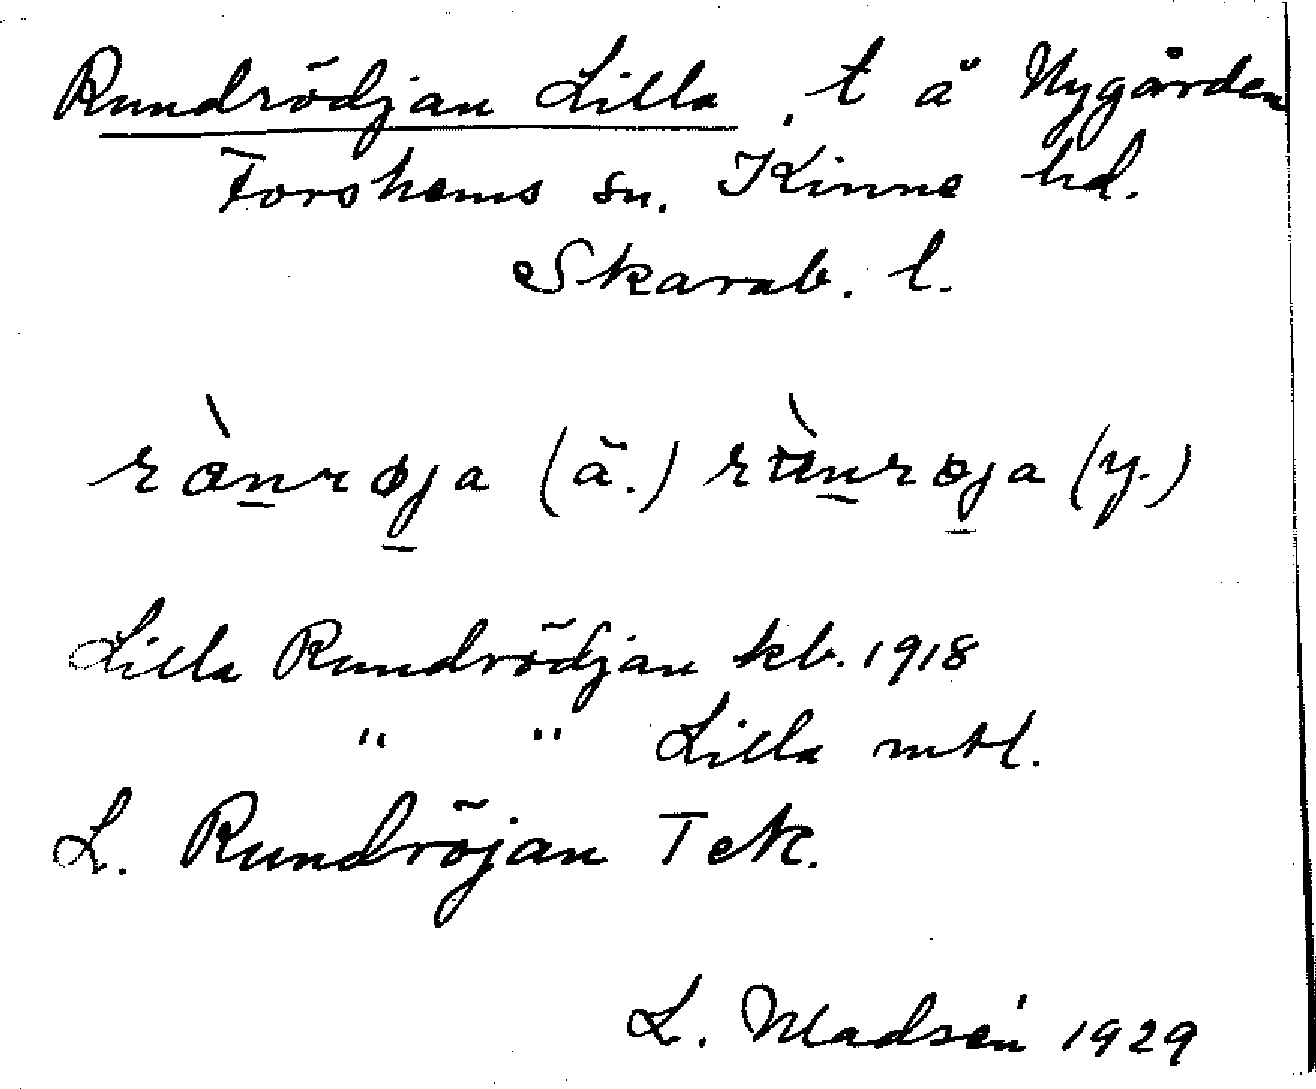 Rundrödjan Lilla, t å Nygården
Forshems sn. Kinne hd.
Skarab. l.
rònrøja (ä.) rùnrøja (y.)
Lilla Rundrödjan kb. 1918
" " Lilla mtl.
L. Rundröjan Tck.
L. Madsén 1929